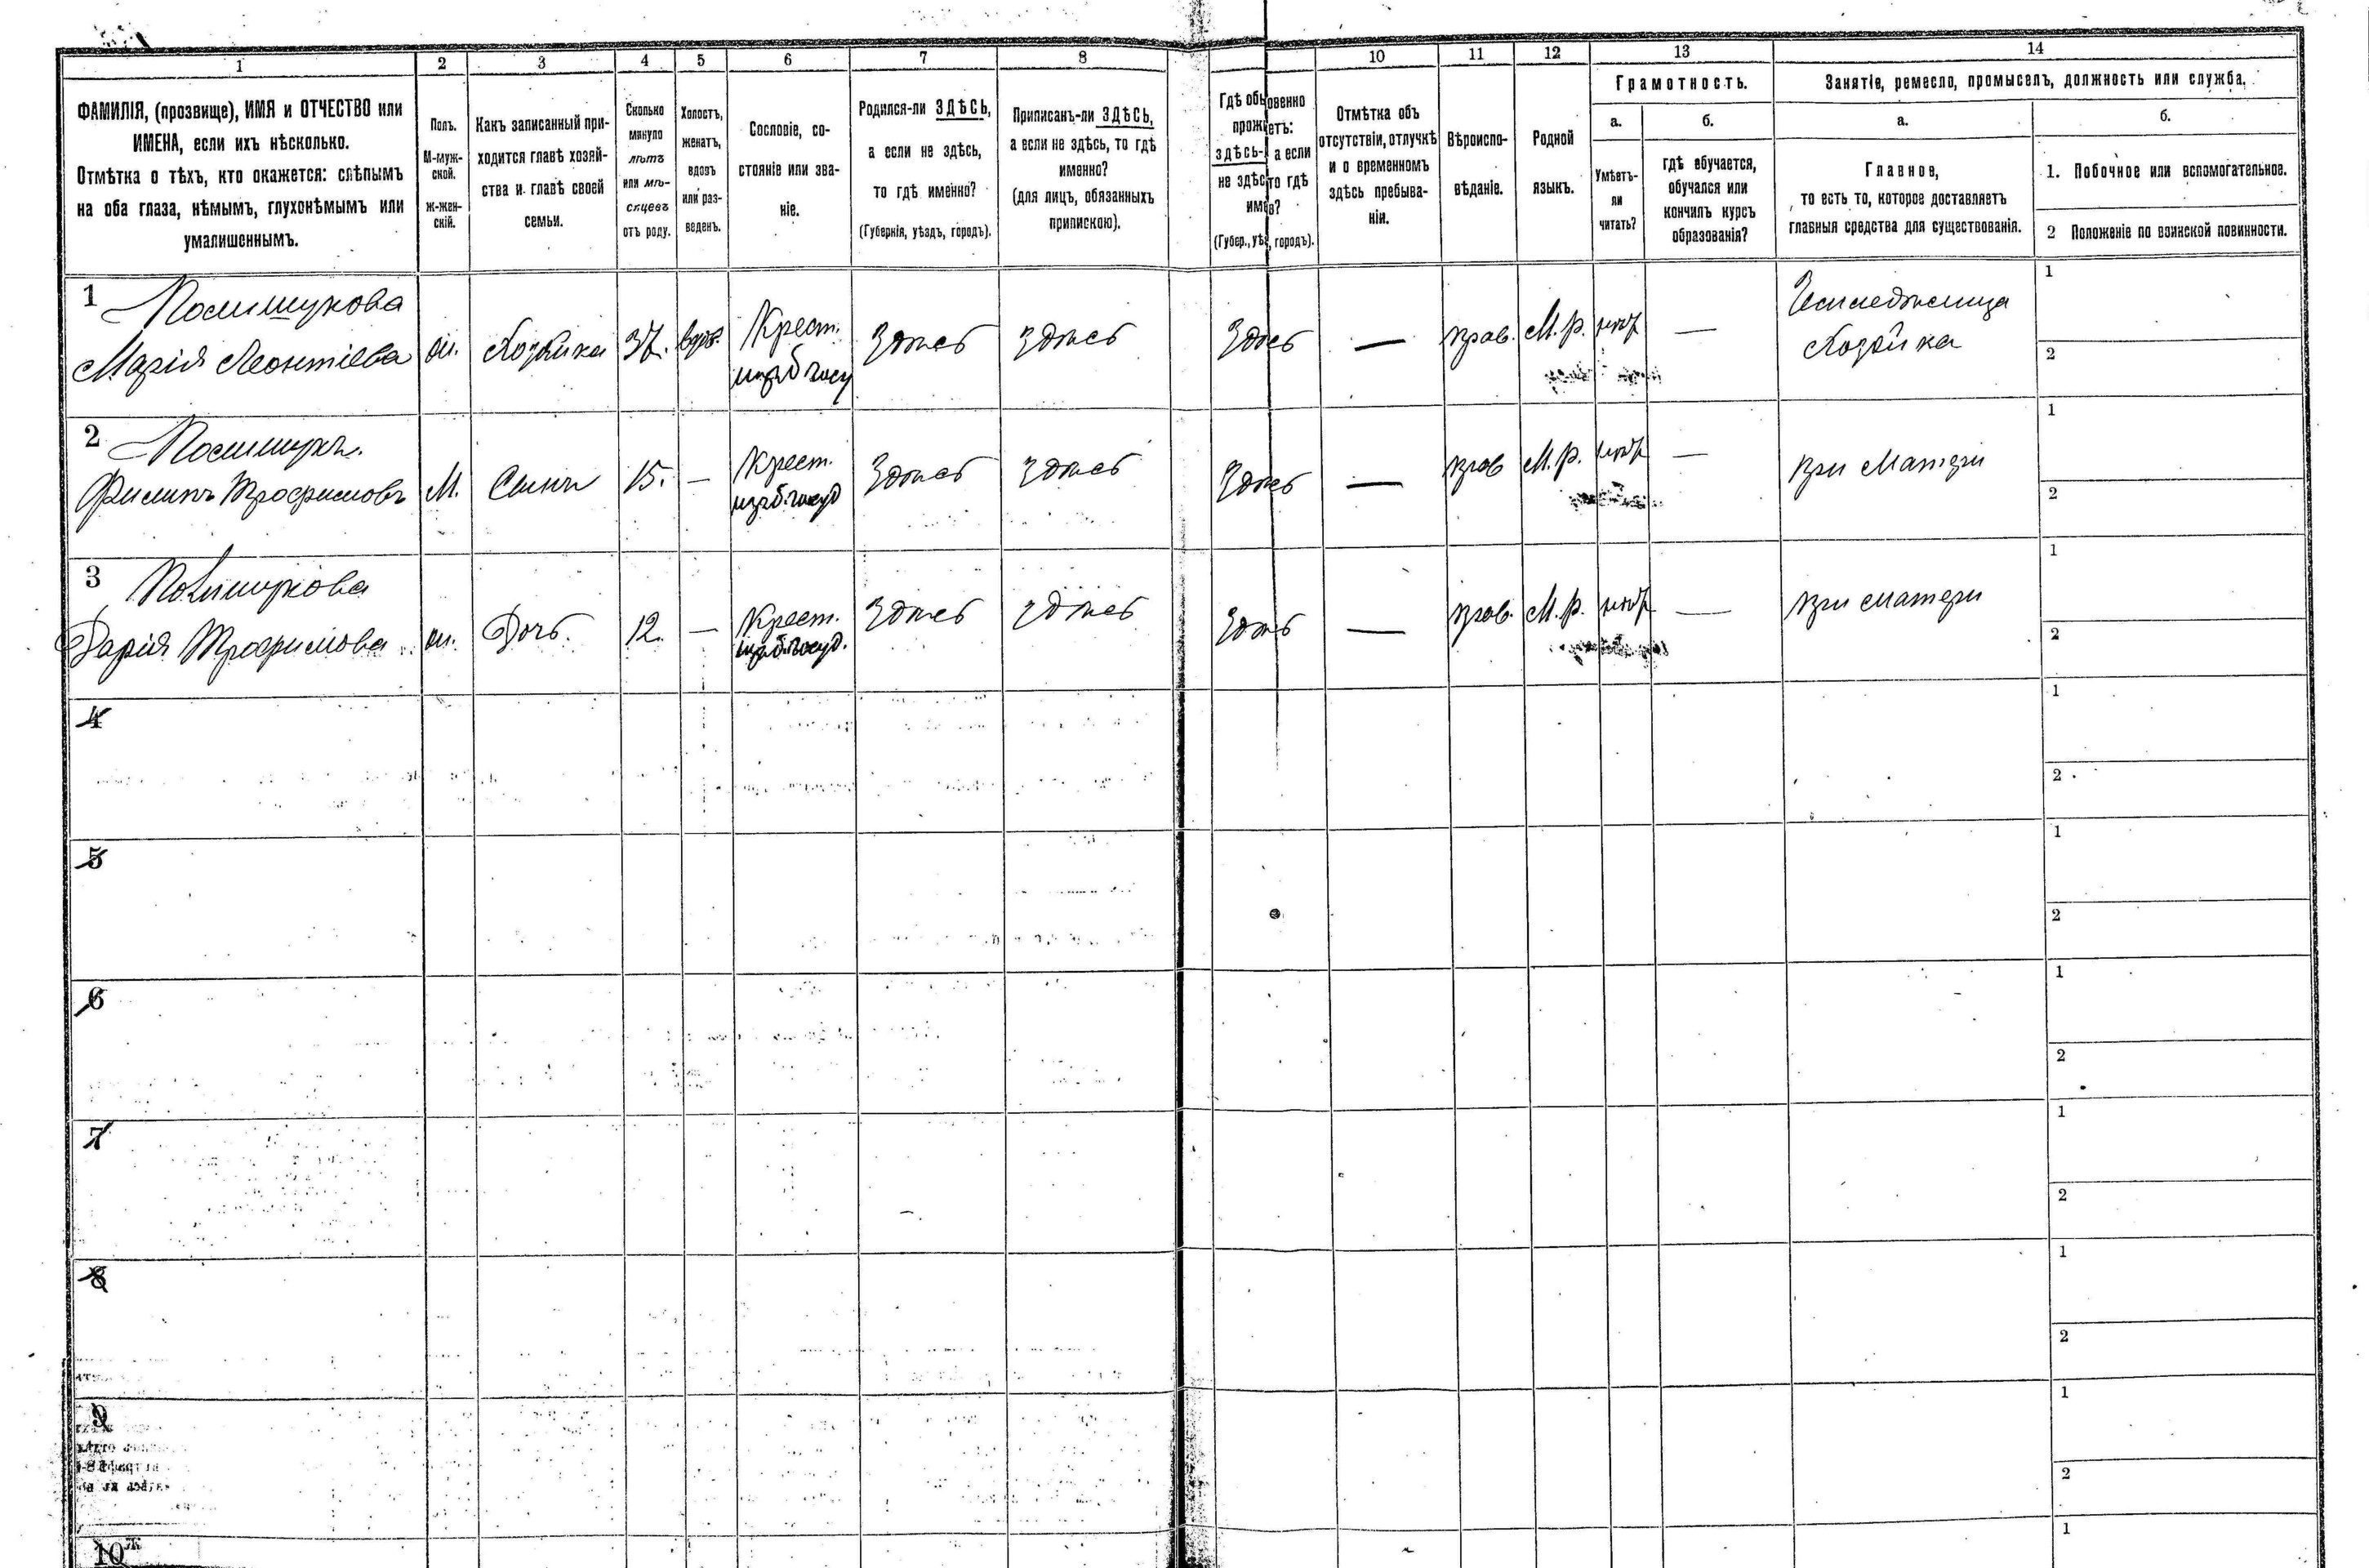 1 2 3 4 5 6 7 8 10 11 12 13 14
ФАМИЛІЯ, (прозвище), ИМЯ и ОТЧЕСТВО или
ИМЕНА, если ихъ нѣсколько.
Отмѣтка о тѣхъ, кто окажется: слѣпымъ
на оба глаза, нѣмымъ, глухонѣмымъ или
умалишеннымъ.
Полъ.
М-муж-
ской.
ж-жен-
скій.
Какъ записанный при-
ходится главѣ хозяй-
ства и главѣ своей
семьи.
Сколько
минуло
лѣтъ
или мѣ-
сяцевъ
отъ роду.
Холостъ,
женатъ,
вдовъ
или раз-
веденъ.
Сословіе, со-
стояніе или зва-
ніе.
Родился-ли ЗДѢСЬ,
а если не здѣсь,
то гдѣ именно?
(Губернія, уѣздъ, городъ).
Приписанъ-ли ЗДѢСЬ,
а если не здѣсь, то гдѣ
именно?
(для лицъ, обязанныхъ
припискою).
Гдѣ обыкновенно
проживаетъ:
здѣсь- а если
не здѣсь то гдѣ
(Губер., уѣз., городъ).
Отмѣтка объ
отсутствіи, отлучкѣ
и о временномъ
здѣсь пребыва-
ніи.
Вѣроиспо-
вѣданіе.
Родной
языкъ.
Грамотность.
а.
Умѣетъ-
ли
читать?
б.
гдѣ обучается,
обучался или
кончилъ курсъ
образованія?
Занятіе, ремесло, промыселъ, должность или служба.
а.
Главное,
то есть то, которое доставляетъ
главныя средства для существованія.
б.
1. Побочное или вспомогательное.
2 Положеніе по воинской повинности.
1 Полищукова
Марія Леонтіева
ж. Хозяйка 37. вдов. Крест.
изъ б. госу
Здѣсь Здѣсь Здѣсь — прав. М. р. нѣт —
Земледѣлица
Хозяйка
1
2
2 Полищукъ.
Филипъ Трофимовъ
М. Сынъ 15. — Крест.
изъ б. госуд
Здѣсь Здѣсь Здѣсь — прав М. р. нѣт — при Матери
1
2
3 Полищукова
Дарія Трофимова
ж. Дочь. 12. — Крест.
изъ б. госуд.
Здѣсь Здѣсь Здѣсь — прав. М. р. нѣт — при матери
1
2
4
1
2
5
1
2
6
1
2
7
1
2
8
1
2
9
1
2
10
1